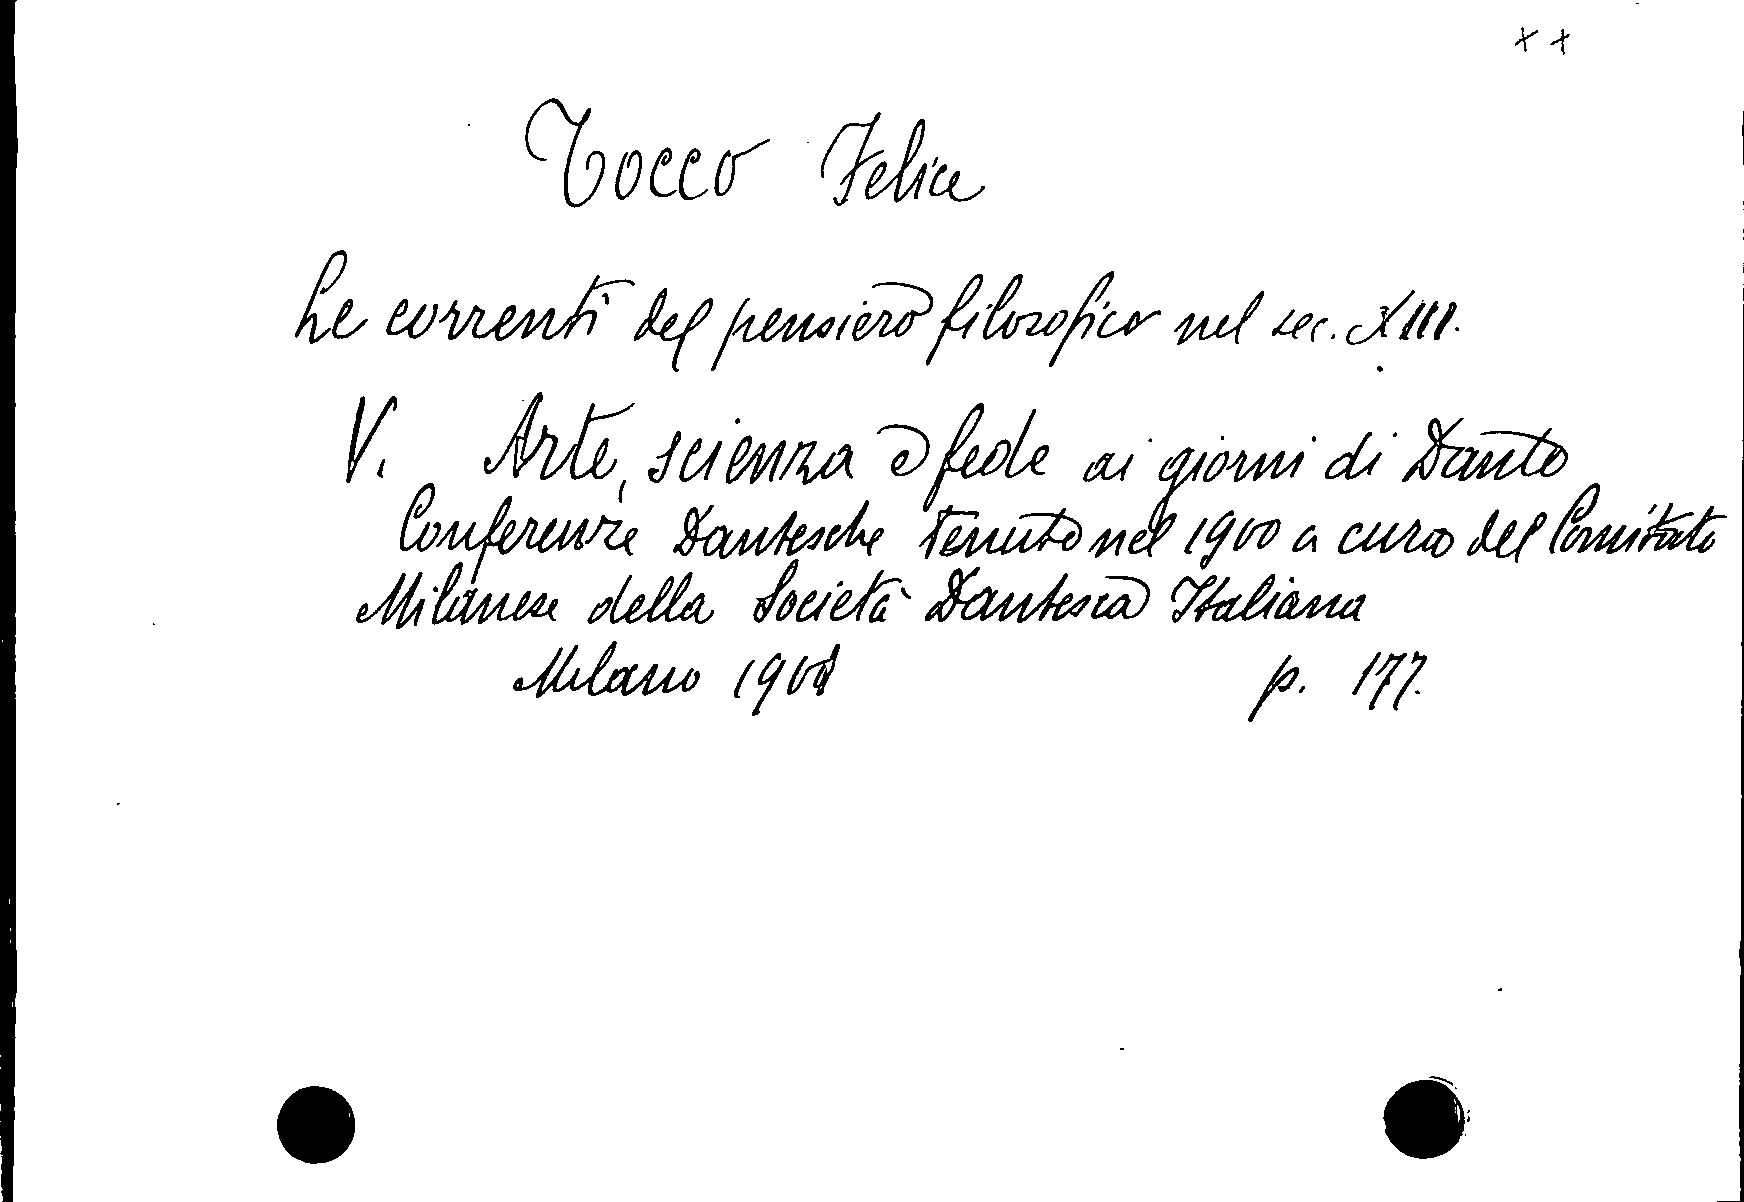 + +
Tocco Felice
Le correnti del pensiero filosofico nel sec. XIII.
V. Arte, scienza e fede ai giorni di Dante
Conferenze Dantesche tenute nel 1900 a cura del Comitato
Milanese della Società Dantesca Italiana
Milano 1901 p. 177.